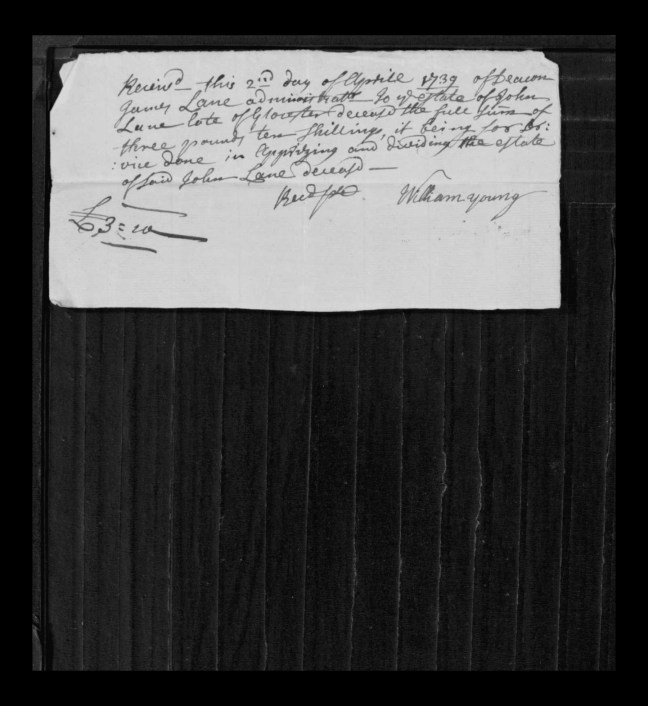 Receivd this 2nd day of Aprill 1739 of Deacon
James Lane administratr to ye estate of John
Lane late of Glocester deceasd the full sum of
three pounds ten shillings, it being for ser:
:vice done in apprizing and dividing the estate
of said John Lane deceasd
Recd pr William young
£3=10